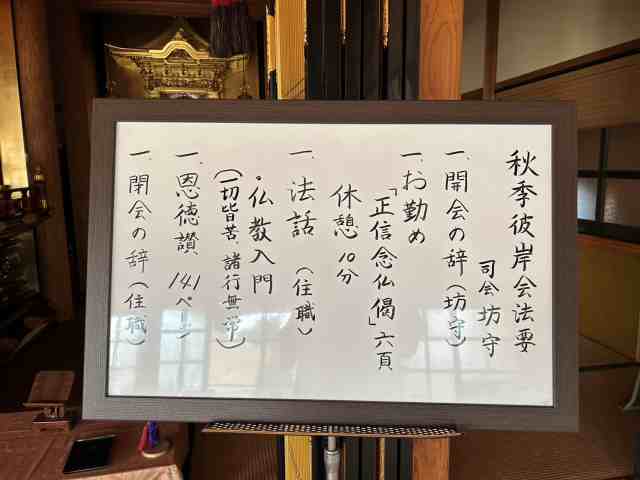 秋季彼岸会法要
司会 坊守
一、開会の辞(坊守)
一、お勤め
「正信念仏偈」六頁
休憩 10分
一、法話 (住職)
・仏教入門
(一切皆苦、諸行無常)
一、恩徳讃 141ページ
一、閉会の辞(住職)